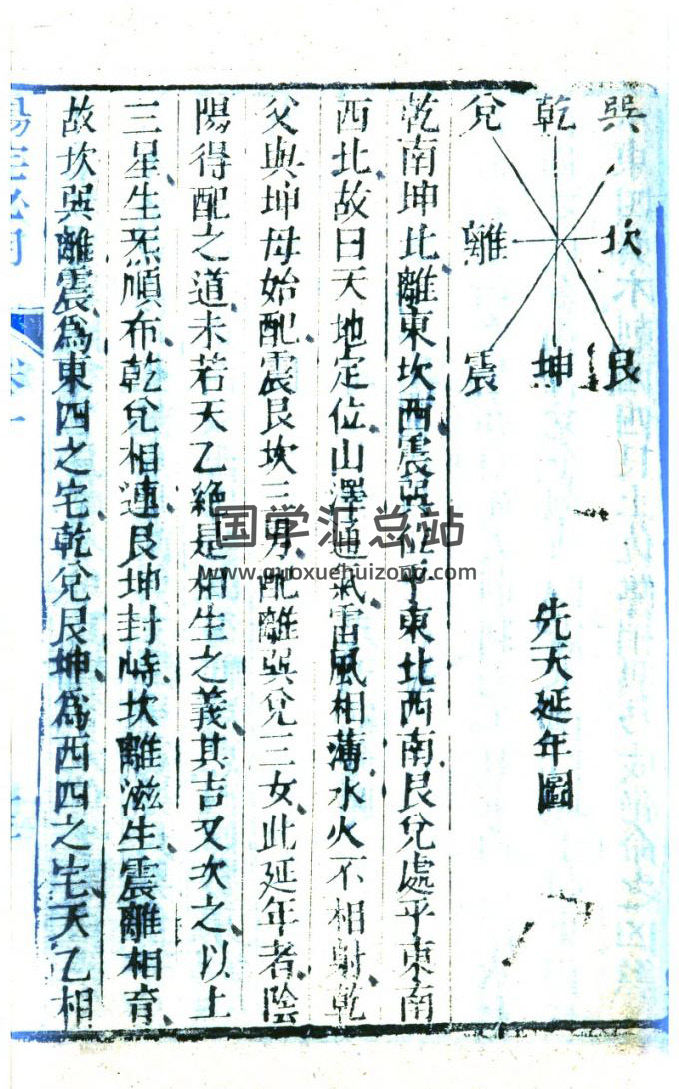 巽
坎
艮
乾
坤
兌
離
震
先天延年圖
乾南坤北離東坎西震巽位乎東北西南艮兌處乎東南
西北故曰天地定位山澤通氣雷風相薄水火不相射乾
父與坤母始配震艮坎三男配離巽兌三女此延年者陰
陽得配之道未若天乙絶是相生之義其吉又次之以上
三星生炁順布乾兌相連艮坤封峙坎離滋生震離相育
故坎巽離震爲東四之宅乾兌艮坤爲西四之宅天乙相
国学汇总站
www.guoxuehuizong.com